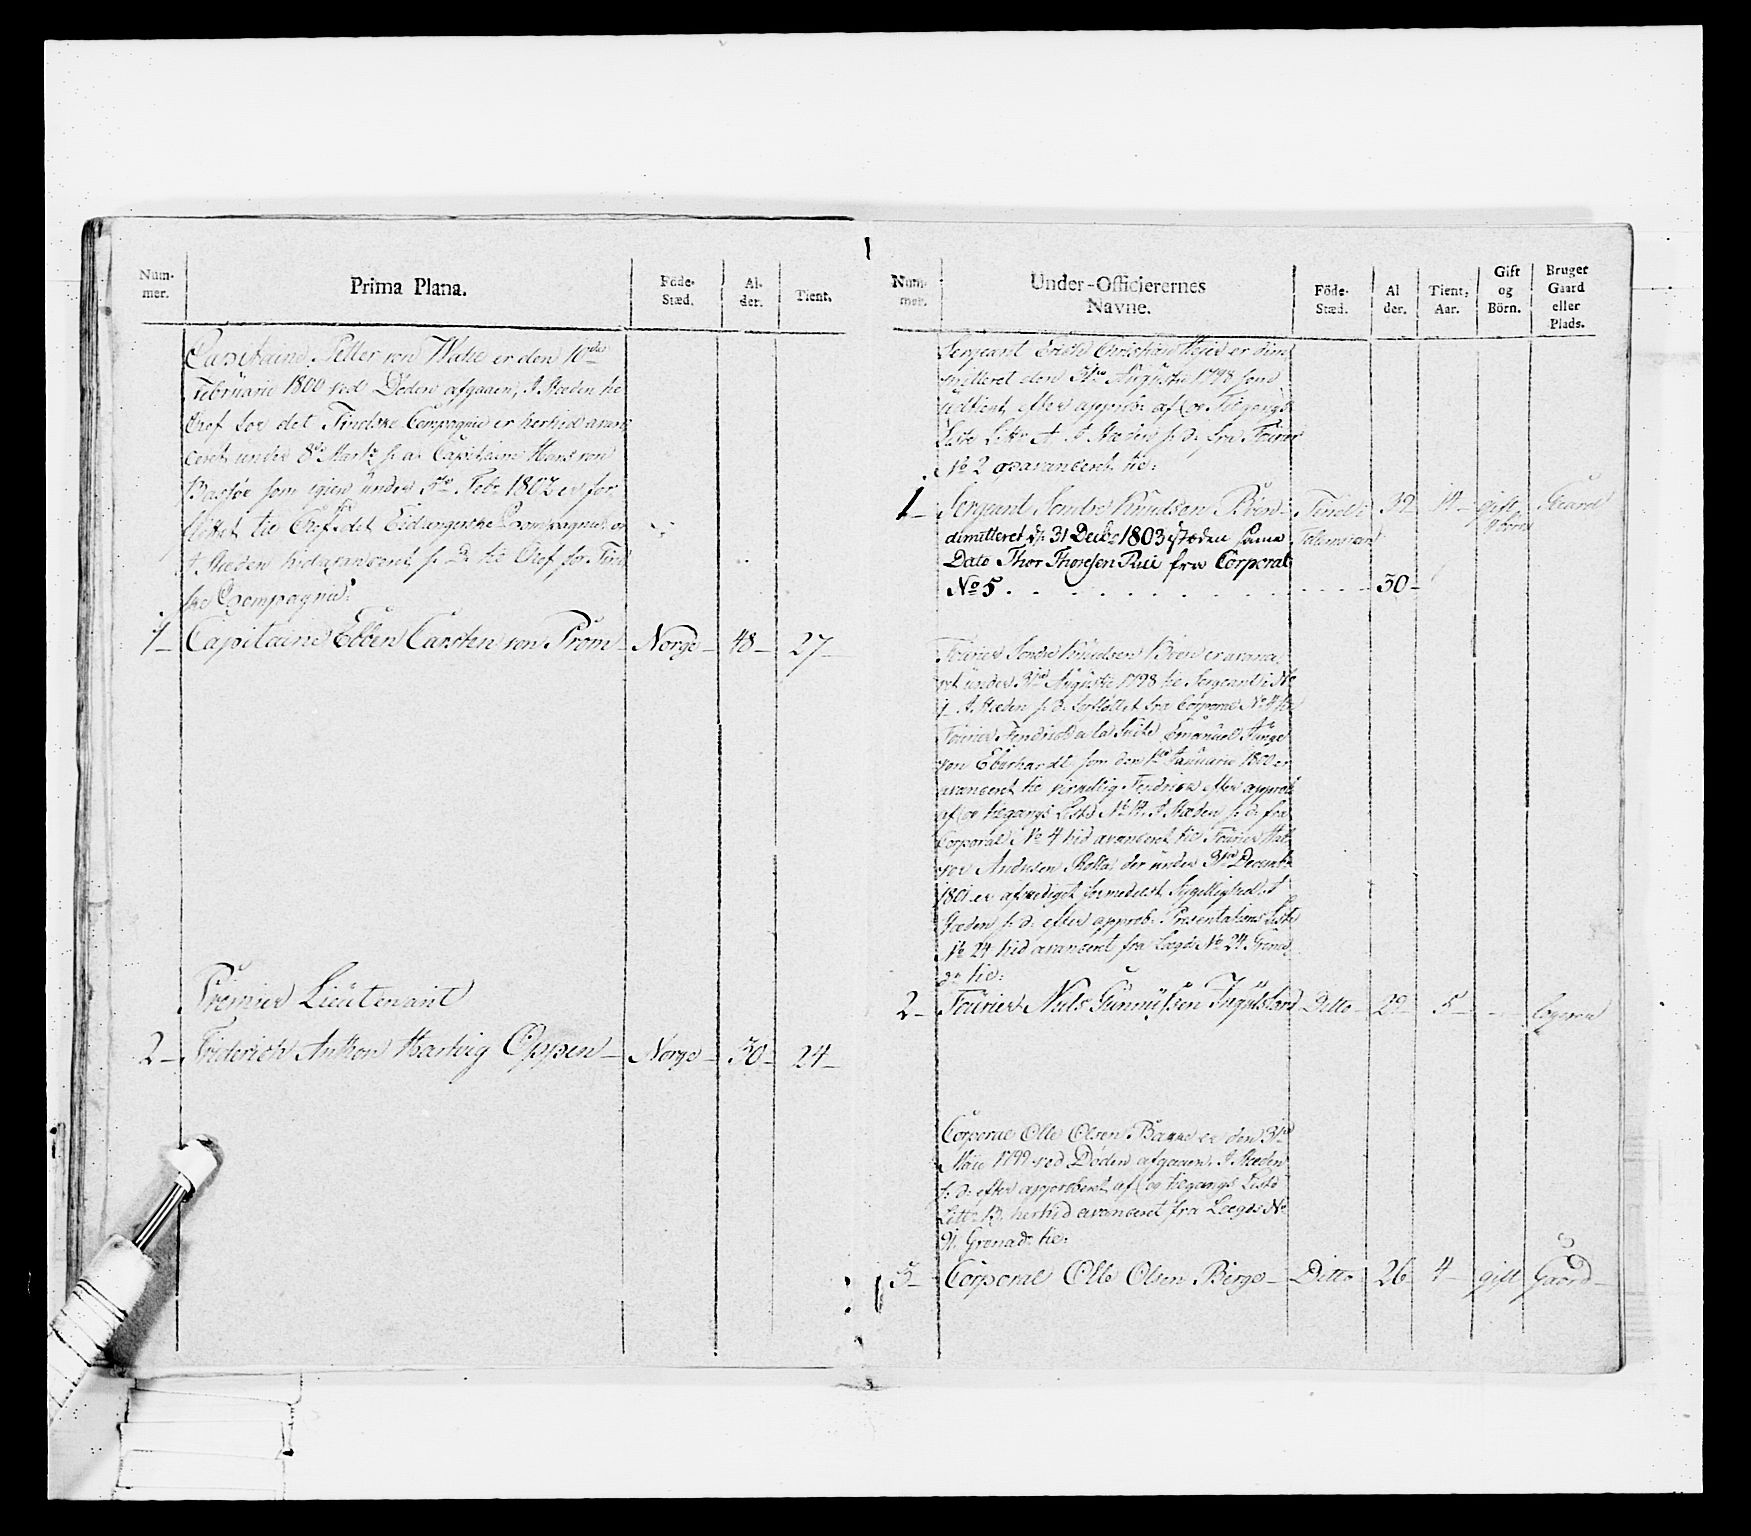 Num-
mer.
Prima Plana.
Föde-
Stæd.
Al-
der.
Tient.
Capitaine Petter von er den 10de
Februarii 1800 ved Döden afgaaen, I Stæden til
Chef for det Tindske Compagnie er hertil avan-
ceret under 8de Marti s: a: Capitaine Hans von
som igien under 5te Febr 1802 er for
flöttet til Chef for det Eidangerske Compagnie, og
I Stæden hid avanceret s: D: til Chef for Tind
ske Compagnie:
1 Capitaine Ebben Carsten von Prom Norge 48 27
Premier Lieutenant
2 Friderich Anthon Hartvig Oppen Norge 30 24
Num-
mer.
Under-Officierernes
Navne.
Föde-
Stæd.
Al
der.
Tient,
Aar.
Gift
og
Börn.
Bruger
Gaard
eller
Plads.
Sergeant Christian er dim
mitteret den 31te Augusti 1798 som
udtient, efter approb: af Tilgangs
Liste Litr A. I Stæden s: d: fra Fourier
No 2 avanceret til:
1 Sergeant Sondre Knudsen Böen Tind 39 gift Gaard
dimitteret d: 31 Decbr 1803 istæden samme
Dato Thor Thoresen Rui fra Corporal
No 5 . . . . . . . . . 30
Fourier Sondre Knudsen Böen er avance
ret under 31te Augusti 1798 til Sergeant No
1. I Stæden s: d: forflöttet fra Corporal No 4 til
Fourier Fendrich a la Suite Emanuel
von Eberhardt, som den 1te Januarii 1800 er
avanceret til virkelig Fendrich efter approb:
af tilgangs Liste No I Stæden s: d: fra
Corporal No 4 hid avanceret til Fourier Hal-
vor Andersen der under 31te Decembr
1801 er afskediget formedelst Svagelighed, I
Stæden s: d: efter approb: Presentations Liste
No 24 hid avanceret fra Lægd No 24 Grena-
dr til:
2 Fourier Niels Gunnulfsen Ingulsland Ditto 29 5
Corporal Olle Olsen er den 31te
Maii 1799 ved Döden afgaaen. I Stæden
s: d: efter approberet af tilgangs Liste
Litr B. hertil avanceret fra Lægd No
91. Grenadr til:
3 Corporal Olle Olsen Berge Ditto 26 4 gift Gaard